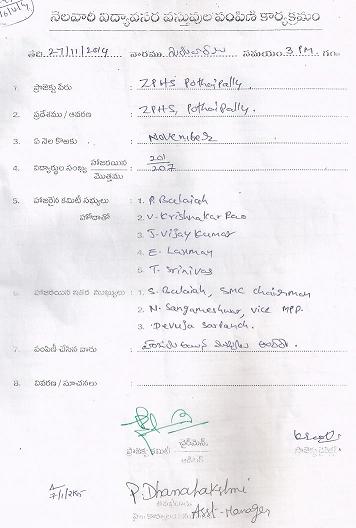 నెలవారి విద్యావసర వస్తువుల పంపిణి కార్యక్రమం
తేది. 27/11/2014 వారము గురువారము సమయం 3 P.M. గం
1. ప్రాజెక్టు పేరు : ZPHS Pothaipally.
2. ప్రదేశము / ఆవరణ : ZPHS, Pothaipally.
3. ఏ నెల కొఱకు : November
4. విద్యార్థుల సంఖ్య హాజరయిన / మొత్తము : 201 / 207
5. హాజరైన కమిటి సభ్యులు : 1. P. Balaiah
హోదాతో 2. V. Krishnakar Rao
3. J. Vijay Kumar
4. E. Laxman
5. T. Srinivas
6. హాజరయిన ఇతర ముఖ్యులు : 1. S. Balaiah, SMC Chairman
2. N. Sangameshwar, Vice MPP.
3. Devuja Sarpanch.
7. పంపిణీ చేసిన వారు :
8. వివరణ / సూచనలు :
ప్రాజెక్టు కమిటి చైర్మెన్
P. Dhanalakshmi
Asst-Manager